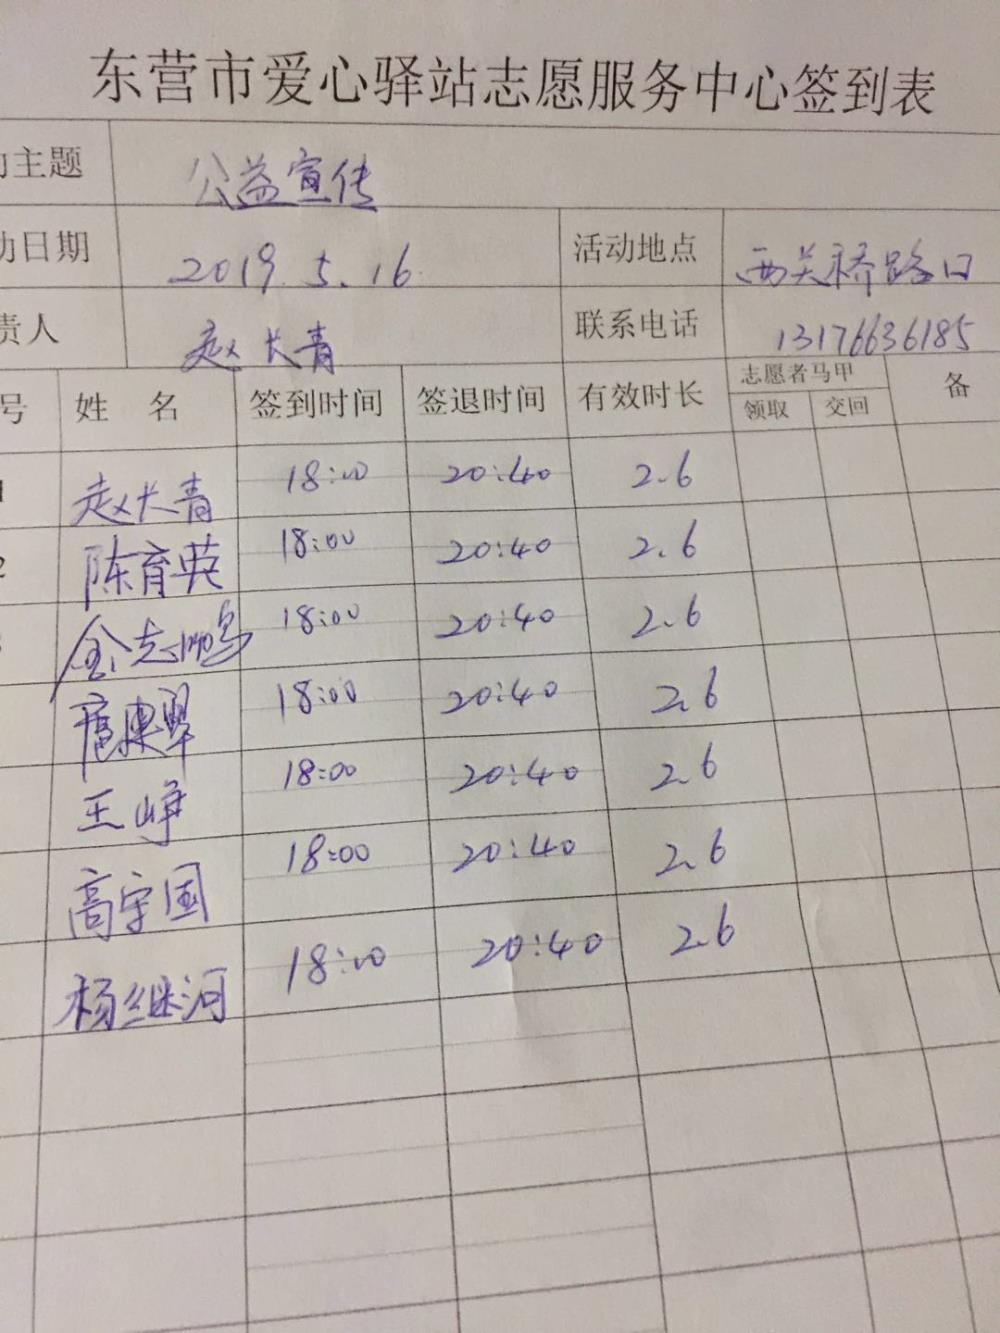 东营市爱心驿站志愿服务中心签到表
动主题 公益宣传
动日期 2019.5.16 活动地点 西关桥路口
责人 赵长青 联系电话 13176636185
号 姓名 签到时间 签退时间 有效时长 志愿者马甲 备
领取 交回
1 赵长青 18:00 20:40 2.6
2 陈育英 18:00 20:40 2.6
金志鹏 18:00 20:40 2.6
18:00 20:40 2.6
王峥 18:00 20:40 2.6
高宇国 18:00 20:40 2.6
杨继河 18:00 20:40 2.6